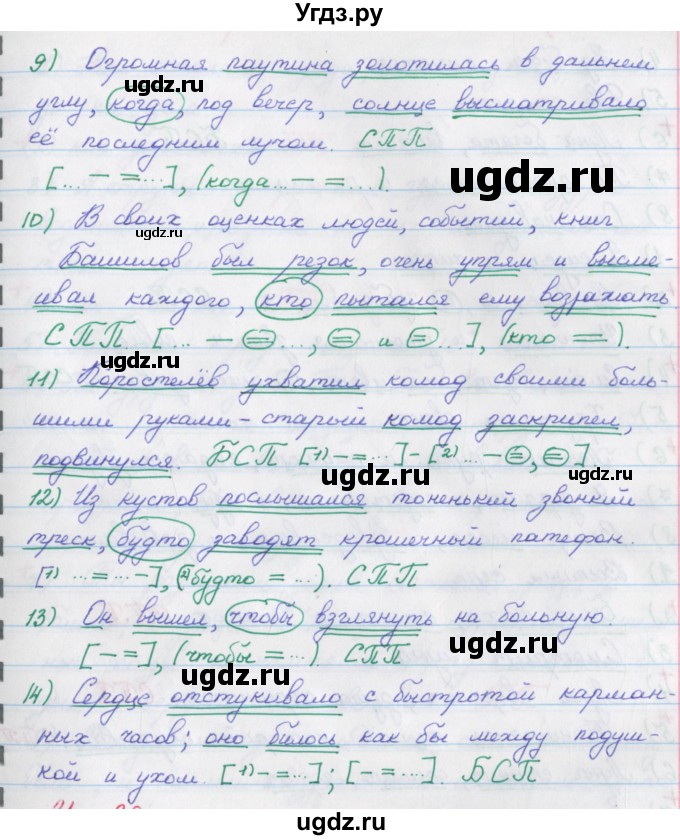 Угдз.ру
9) Огромная паутина золотилась в дальнем
углу, когда, под вечер, солнце высматривало
её последним лучом. СПП
[... – =...], (когда... – =...).
10) В своих оценках людей, событий, книг
Башилов был резок, очень упрям и высме-
ивал каждого, кто пытался ему возражать.
СПП. [... – = ..., = и = ...], (кто =).
11) Коростелёв ухватил комод своими боль-
шими руками – старый комод заскрипел,
подвинулся. БСП [1) – =...] – [2)... – =, =]
12) Из кустов послышался тоненький звонкий
треск, будто заводят крошечный патефон.
[1) ...=...–], (2) будто = ...). СПП
13) Он вышел, чтобы взглянуть на больную.
[– =], (чтобы = ...). СПП
14) Сердце отстукивало с быстротой карман-
ных часов; оно билось как бы между подуш-
кой и ухом. [1) – =...]; [– = ....]. БСП
ugdz.ru
ugdz.ru
ugdz.ru
ugdz.ru
ugdz.ru
ugdz.ru
ugdz.ru
ugdz.ru
ugdz.ru
ugdz.ru
ugdz.ru
ugdz.ru